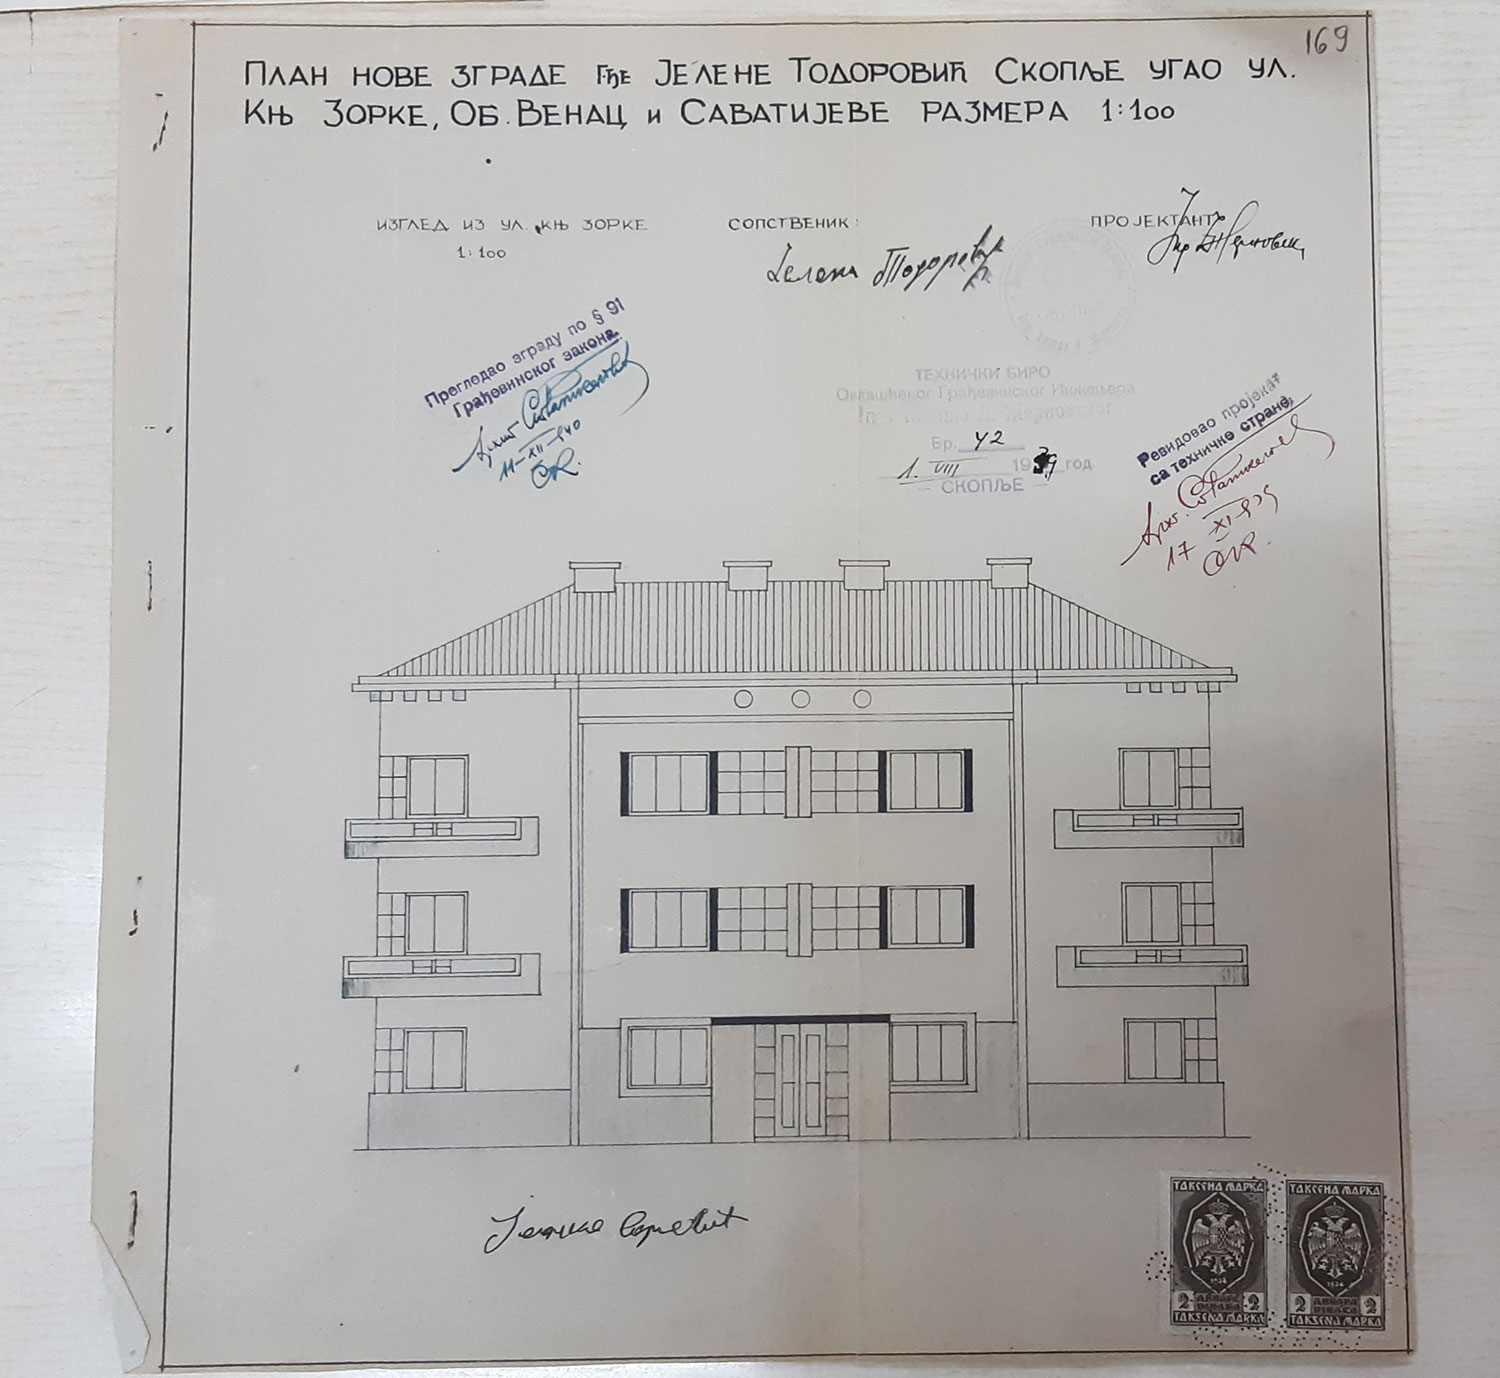 169
ПЛАН НОВЕ ЗГРАДЕ ГЂЕ ЈЕЛЕНЕ ТОДОРОВИЋ СКОПЉЕ УГАО УЛ.
КЊ ЗОРКЕ, ОБ. ВЕНАЦ И САВАТИЈЕВЕ РАЗМЕРА 1:100
ИЗГЛЕД ИЗ УЛ. КЊ ЗОРКЕ
1:100
СОПСТВЕНИК:
Јелена Тодоровић
ПРОЈЕКТАНТ
Прегледао зграду по § 91
Грађевинског закона.
11-XII-940
ТЕХНИЧКИ БИРО
Овлашћеног Грађевинског Инжењера
Бр. 42
1. VIII 1939 год.
— СКОПЉЕ —
Ревидовао пројекат
са техничке стране,
17-XI-939
ТАКСЕНА МАРКА
1934
2 ДИНАРА 2
DINARA
TAKSENA MARKA
ТАКСЕНА МАРКА
1934
2 ДИНАРА 2
DINARA
TAKSENA MARKA